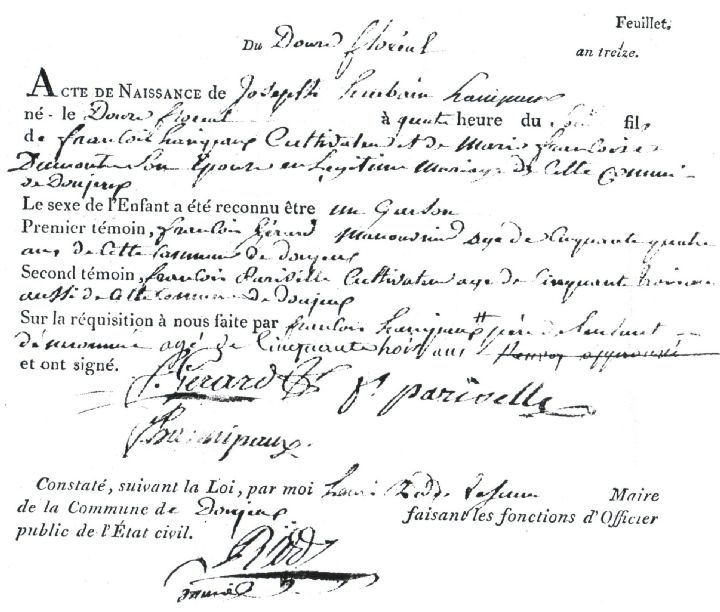 Feuillet.
Du Douze floréal an treize.
ACTE DE NAISSANCE de Joseph
né - le Douze floreal à quatre heure du Soir fils
de françois Cultivateur et de Marie francoise
Dumont Son Epouse en Legitime Mariage de Cette Commune
de Donjeux
Le sexe de l'Enfant a été reconnu être un Garson
Premier témoin, francois Gérard Manouvrier age de Cinquante quatre
ans de Cette Commune de Donjeux
Second témoin, francois Pariselle Cultivateur age de Cinquante trois ans
aussi de Cette Commune de Donjeux
Sur la réquisition à nous faite par francois père de l'enfant
dénommé agé de Cinquante trois ans Renvoy approuvé
et ont signé. Gérard f. pariselle
Constaté, suivant la Loi, par moi Maire
de la Commune de Donjeux faisant les fonctions d'Officier
public de l'État civil.